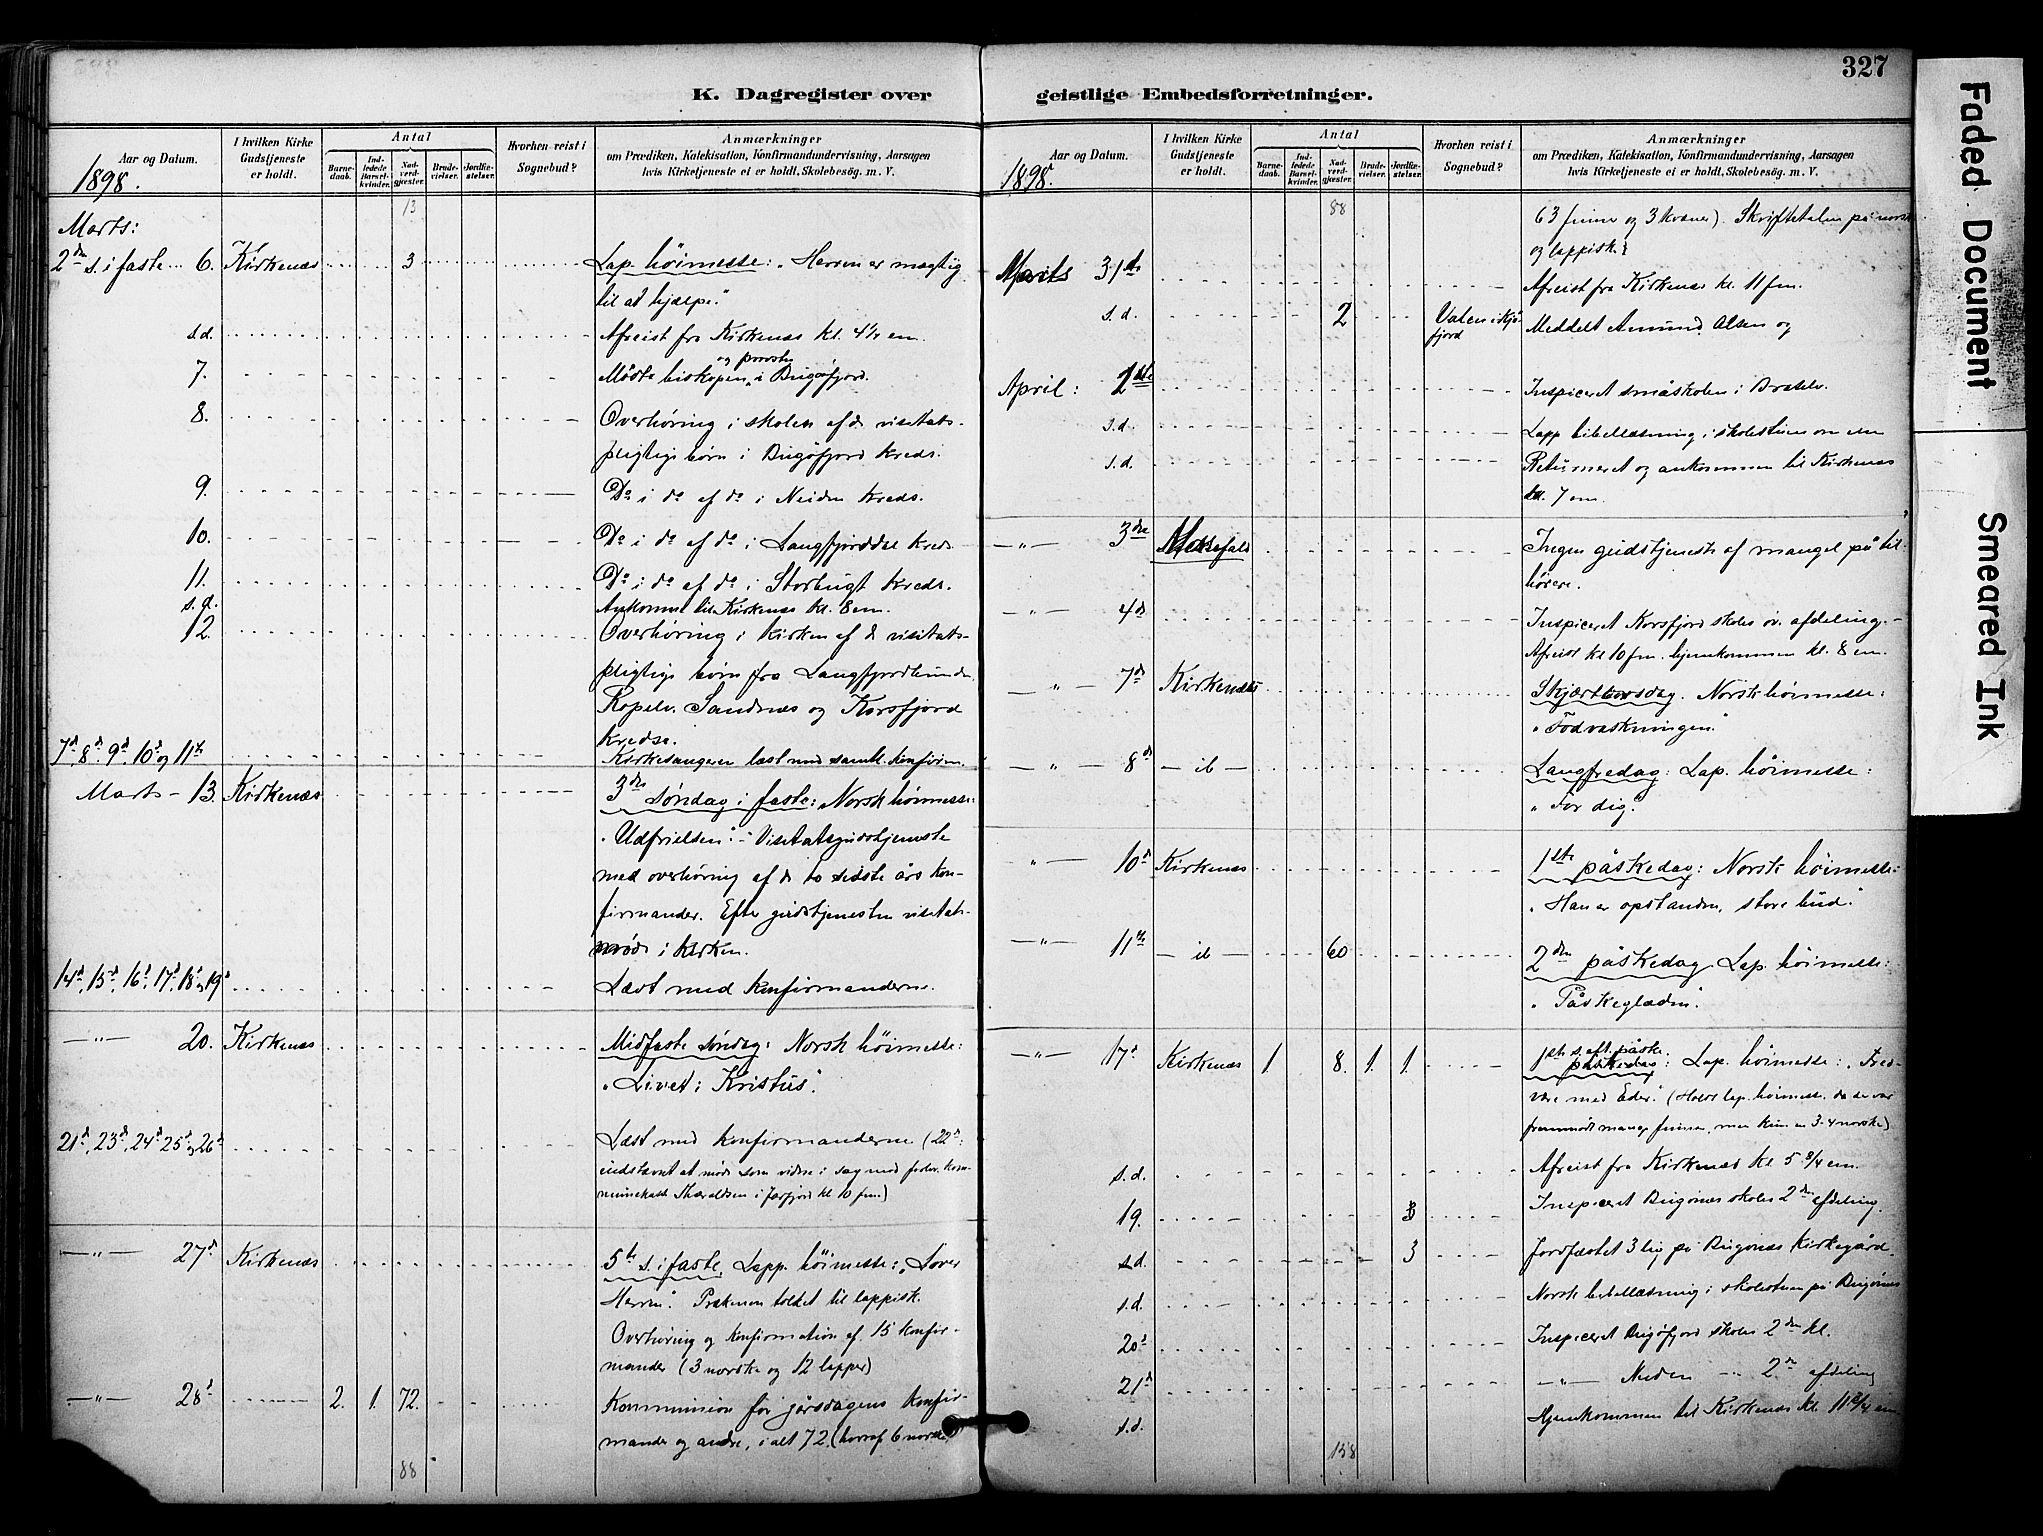 327
K. Dagregister over
geistlige Embedsforretninger.
Aar og Datum.
I hvilken Kirke Gudstjeneste er holdt.
Antal
Barnedaab.
Indledede Barselkvinder.
Nadverdgjester.
Brudevielser.
Jordfæstelser.
Hvorhen reist i Sognebud?
Anmærkninger
om Prædiken, Katekisation, Konfirmandundervisning, Aarsagen
hvis Kirketjeneste ei er holdt, Skolebesøg. m. V.
1898.
13
Marts:
2den s. i faste 6. Kirkenæs 3 Lap. höimesse: „Herren er mægtig
til at hjælpe."
s.d. Afreist fra Kirkenæs kl. 4½ em.
7. Mödte biskopen og provsten i Bugöfjord.
8. Overhöring i skolen af de visitats-
pligtige börn i Bugöfjord kreds.
9. Do i do af do i Neiden kreds.
10. Do i do af do i Langfjorddal kreds
11. Do i do af do i Storbugt kreds.
s.d. Ankommet til Kirkenæs kl. 8 em.
12. Overhöring i kirken af de visitats-
pligtige börn fra Langfjordbunden
Ropelv. Sandnæs og Korsfjord
kredse.
7d, 8d, 9d, 10d og 11te Kirkesangeren læst med samtl. konfirm.
Marts – 13. Kirkenæs 3die söndag i faste: Norsk höimesse:
„Udfrielsen". – Visitatsgudstjeneste
med overhöring af de to sidste års kon-
firmander. Efter gudstjenesten visitats-
möde i kirken.
14d, 15d, 16d, 17d, 18d og 19d Læst med konfirmanderne.
— „ — 20. Kirkenæs Midfaste söndag: Norsk höimesse:
„Livet i Kristus".
21d, 23d, 24d 25d og 26d Læst med konfirmanderne (22d:
indstævnet at möde som vidne i sag mod forhv. kom-
munekass. Tharaldsen i Jarfjord kl 10 fm.)
— „ — 27d Kirkenæs 5te s. i faste. Lapp. höimesse: „Lover
Herren". Prækenen tolket til lappisk.
Overhöring og konfirmation af 15 konfir-
mander (3 norske og 12 lapper)
— „ — 28d 2. 1. 72. Kommunion for gårsdagens konfir-
mander og andre, i alt 72. (hvoraf 6 norske
88
Aar og Datum.
I hvilken Kirke Gudstjeneste er holdt.
Antal
Barnedaab.
Indledede Barselkvinder.
Nadverdgjester.
Brudevielser.
Jordfæstelser.
Hvorhen reist i Sognebud?
Anmærkninger
om Prædiken, Katekisation, Konfirmandundervisning, Aarsagen
hvis Kirketjeneste ei er holdt, Skolebesög. m. V.
1898.
88
63 finner og 3 kvæner). Skriftetalen på norsk
og lappisk.
Marts 31te Afreist fra Kirkenæs kl. 11 fm.
s.d. 2 Valen i Kjöfjord Meddelt Amund Olsen og
April: 1ste Inspiceret småskolen i
s.d. Lapp bibellæsning i skolestuen
s.d. Returneret og ankommen til Kirkenæs
kl. 7 em.
— „ — 3die Messefald Ingen gudstjeneste af mangel på til-
hörere.
— „ — 4d Inspiceret Korsfjord skoles öv. afdeling. –
Afreist kl 10 fm. hjemkommen kl. 8 em.
— „ — 7d Kirkenæs Skjærtorsdag. Norsk höimesse:
„Fodvaskningen."
— „ — 8d — ib — Langfredag: Lap. höimesse:
„For dig".
— „ — 10d Kirkenæs 1ste påskedag: Norsk höimesse:
„Han er opstanden, store bud."
— „ — 11te — ib — 60 2den påskedag Lap. höimesse:
„Påskeglæden".
— „ — 17d Kirkenæs 1 8. 1. 1. 1ste s. eft. påske: Lap. höimesse: „Fred
være med Eder". (Holdt lap. höimesse, da der var
fremmödt mange finner, men kun en 3-4 norske)
s.d. Afreist fra Kirkenæs kl 5 3/4 em.
19. Inspiceret Bugönæs skoles 2den afdeling.
s.d. 3 Jordfæstet 3 lig på Bugönæs kirkegård.
s.d. Norsk bibellæsning i skolestuen på Bugönæs
20d Inspiceret Bugöfjord skoles 2den kl.
21d — „ — Neiden — „ — 2den afdeling
s.d. Hjemkommen til Kirkenæs kl. 11 3/4 em
158
Faded Document
Smeared Ink